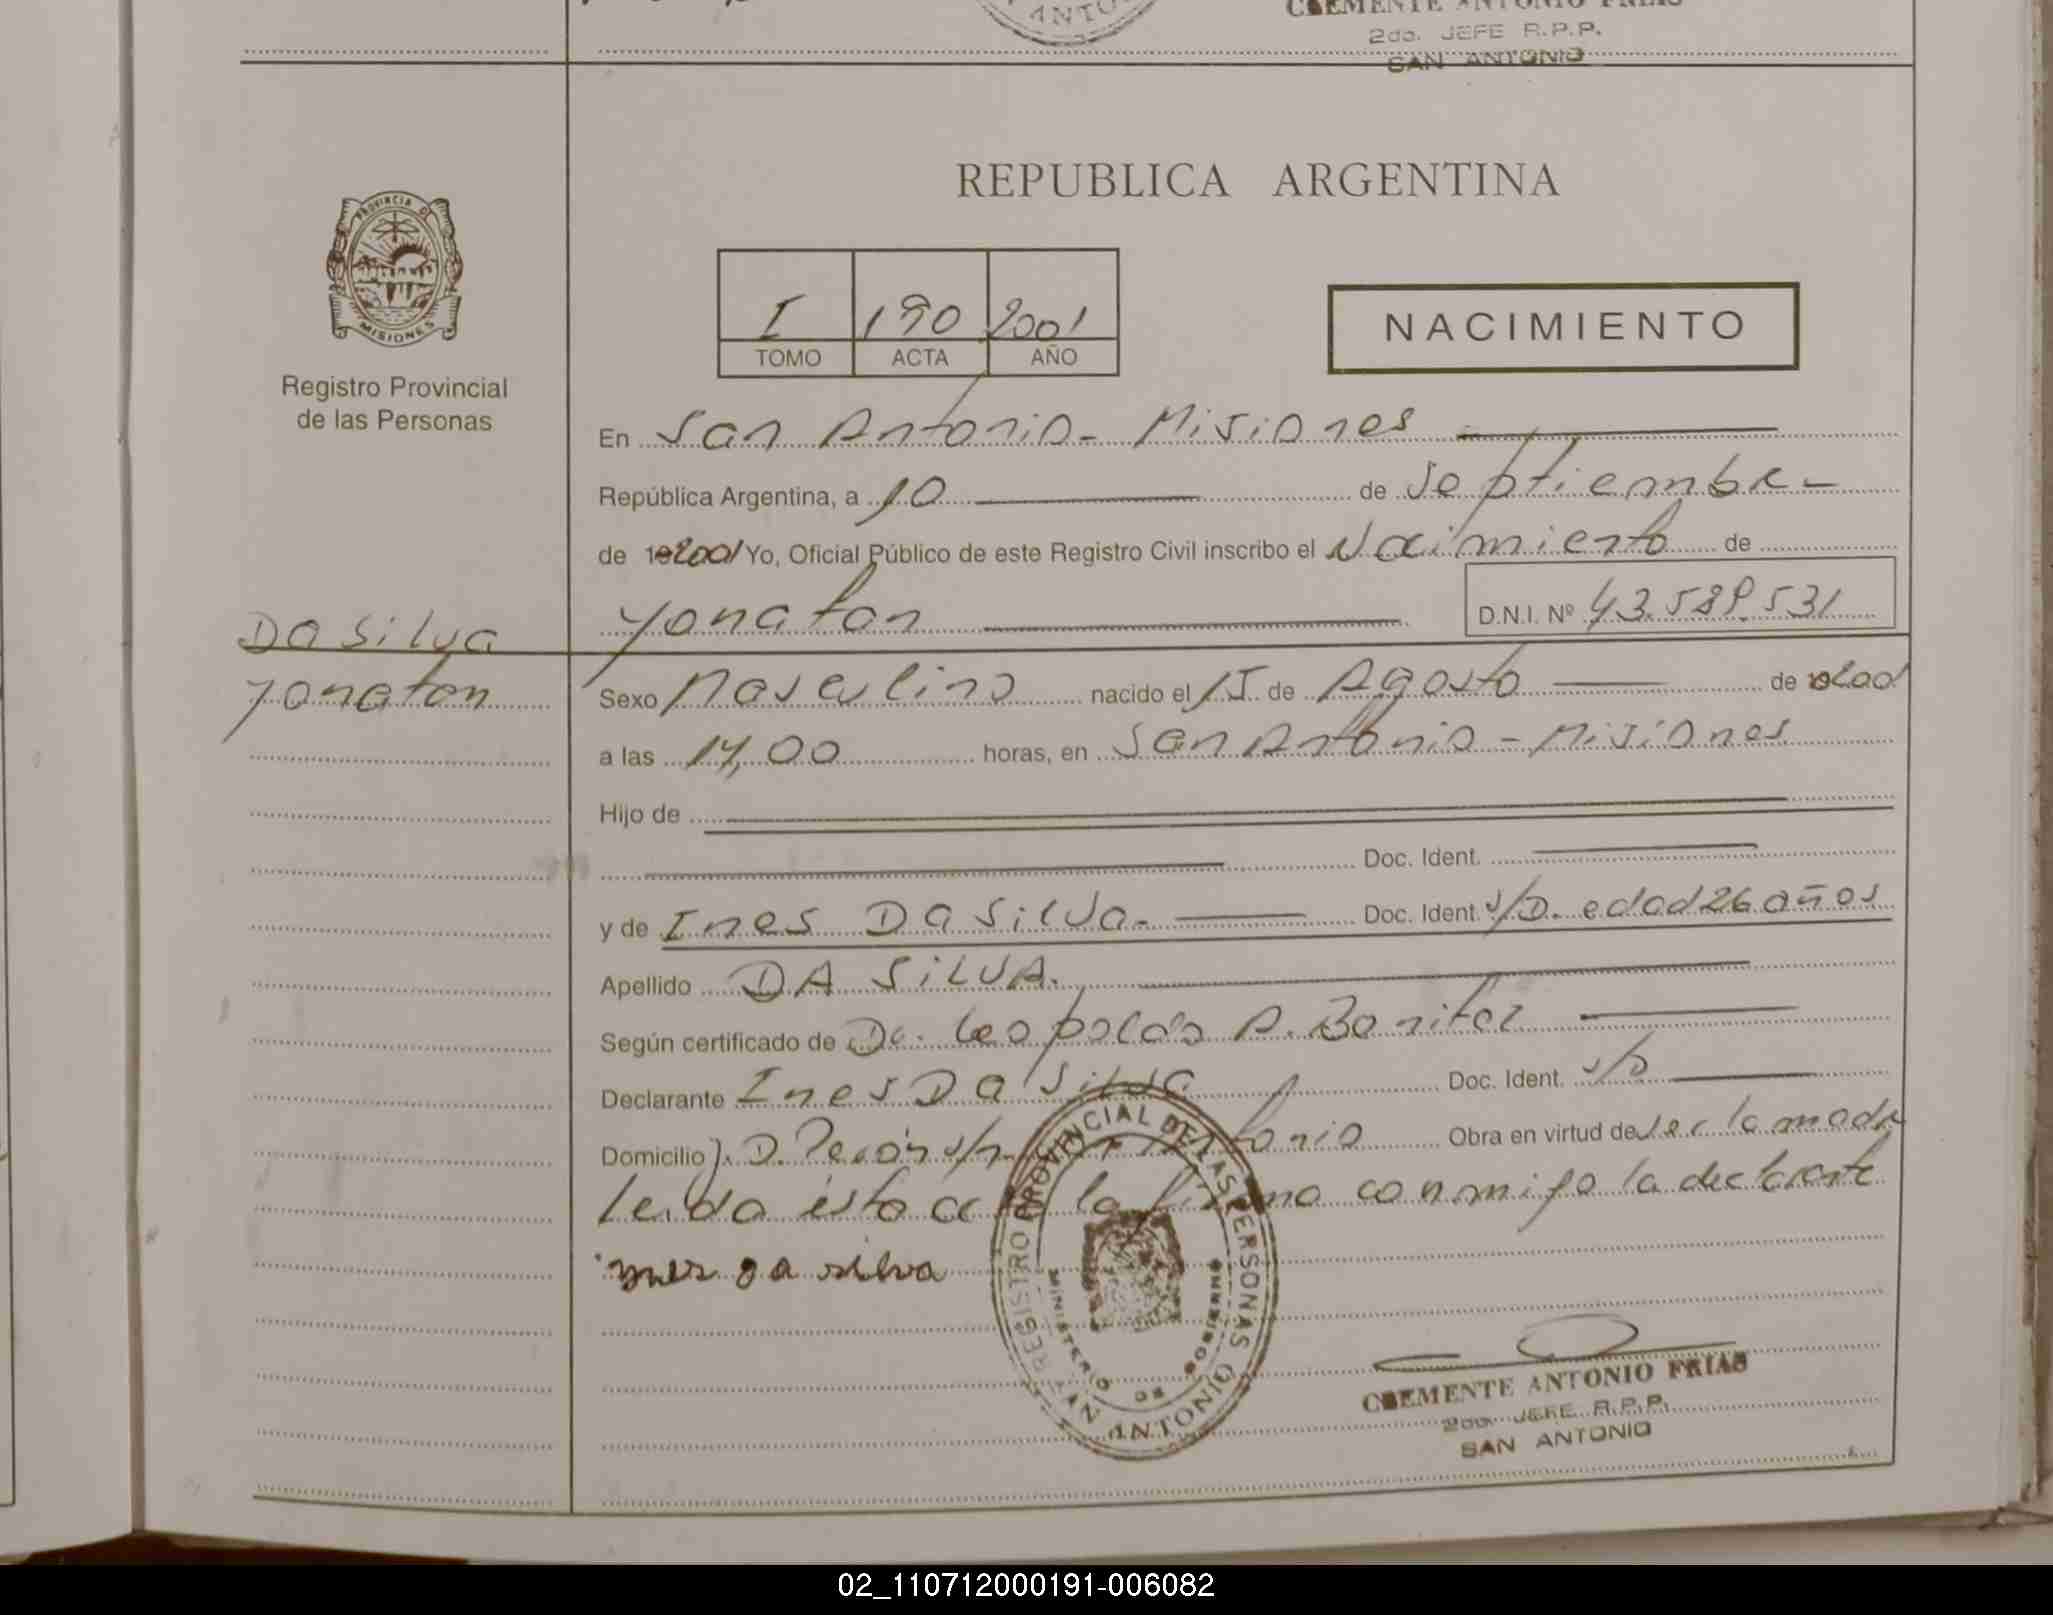 ANTO
CLEMENTE ANTONIO FRIAS
2do. JEFE R.P.P.
SAN ANTONIO
PROVINCIA DE
MISIONES
Registro Provincial
de las Personas
REPUBLICA ARGENTINA
I 190 2001
TOMO ACTA AÑO
NACIMIENTO
En San Antonio - Misiones
República Argentina, a 10 de Septiembre
de 2001 Yo, Oficial Público de este Registro Civil inscribo el Nacimiento de
Yonatan D.N.I. Nº 43.589.531
Da Silva
Yonatan
Sexo Masculino nacido el 15 de Agosto de 2001
a las 14,00 horas, en San Antonio - Misiones
Hijo de
Doc. Ident.
y de Ines Da Silva. Doc. Ident. s/D. edad 26 años
Apellido DA SILVA.
Según certificado de Dr. Leopoldo A. Benitez
Declarante Ines Da Silva Doc. Ident. s/D
Domicilio J. D. Perón s/n Obra en virtud de ser la madre
Leida esta acta la firma conmigo la declarante
ines da silva
REGISTRO PROVINCIAL DE LAS PERSONAS
MINISTERIO DE GOBIERNO
SAN ANTONIO
CLEMENTE ANTONIO FRIAS
2do. JEFE R.P.P.
SAN ANTONIO
02_110712000191-006082